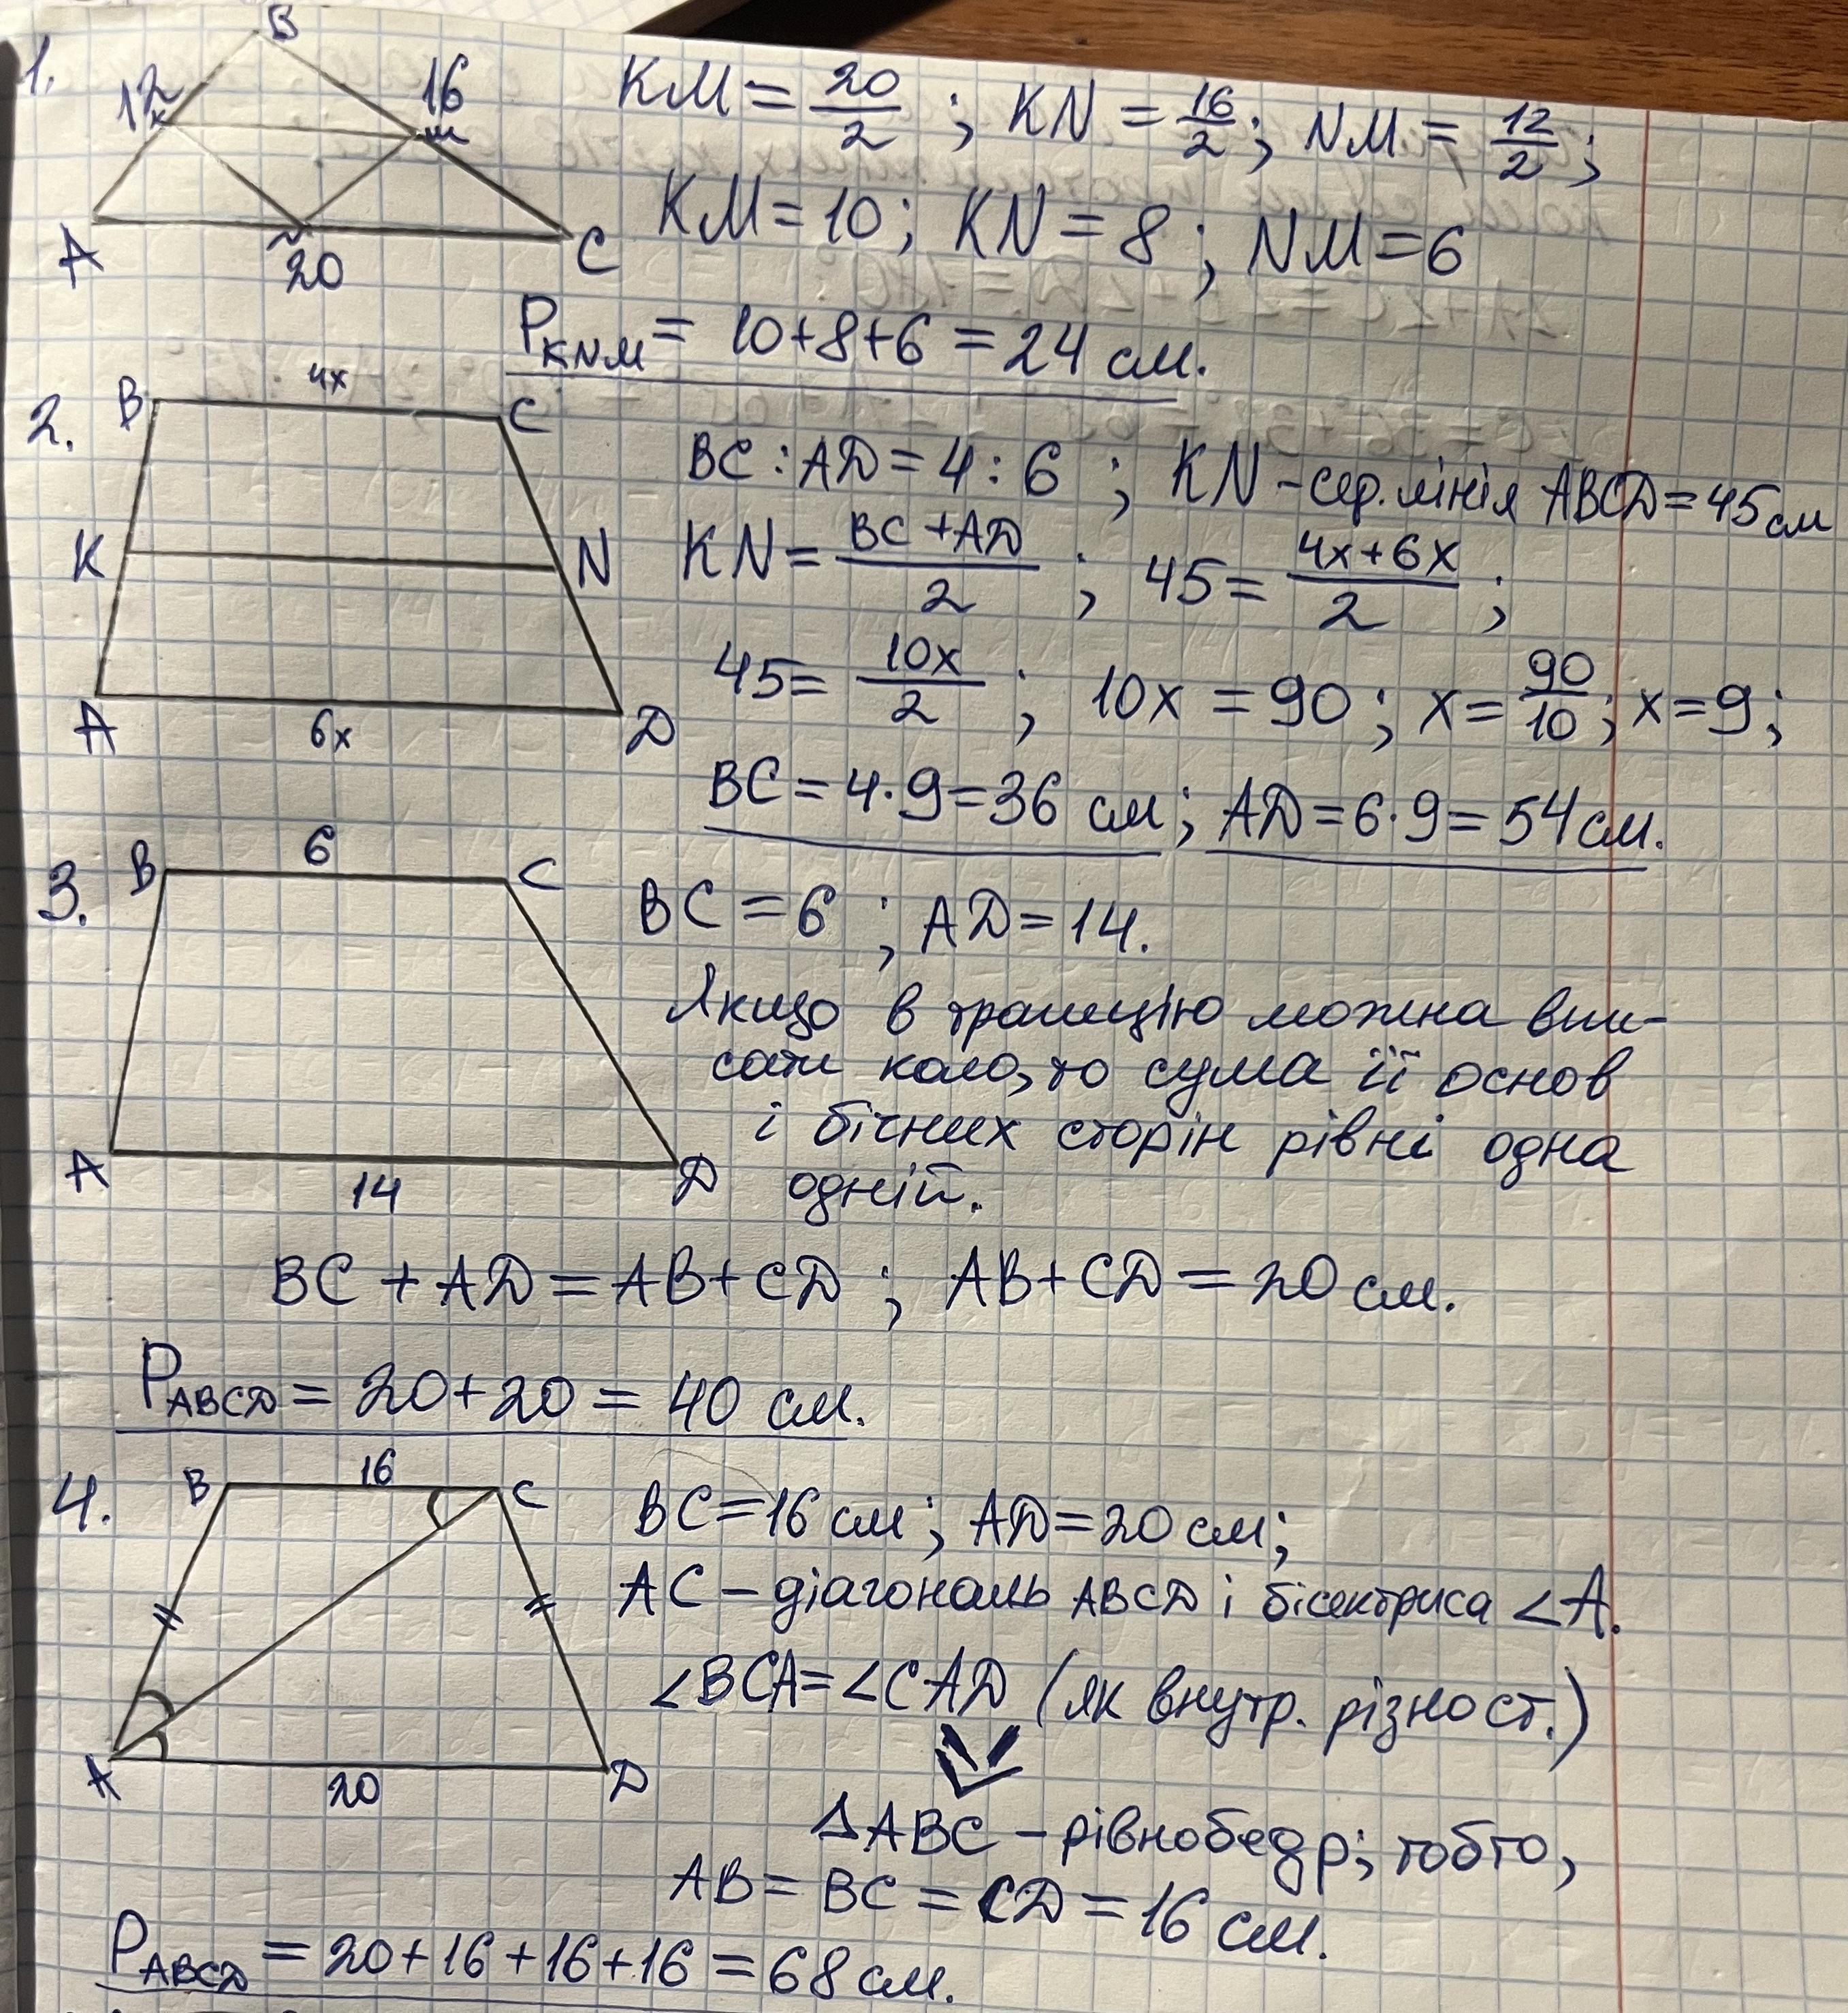 1.
B
12
16
K
M
A
N
20
C
KM = 20/2 ; KN = 16/2 ; NM = 12/2 ;
KM = 10 ; KN = 8 ; NM = 6
P KNM = 10+8+6 = 24 см.
2.
B
4x
C
K
N
A
6x
D
BC : AD = 4 : 6 ; KN – сер. лінія ABCD = 45 см
KN = (BC + AD)/2 ; 45 = (4x+6x)/2 ;
45 = 10x/2 ; 10x = 90 ; x = 90/10 ; x = 9 ;
BC = 4·9 = 36 см ; AD = 6·9 = 54 см.
3.
B
6
C
A
14
D
BC = 6 ; AD = 14.
Якщо в трапецію можна впи-
сати коло, то сума її основ
і бічних сторін рівні одна
одній.
BC + AD = AB + CD ; AB + CD = 20 см.
P ABCD = 20+20 = 40 см.
4.
B
16
C
A
20
D
BC = 16 см ; AD = 20 см ;
AC – діагональ ABCD і бісектриса ∠A.
∠BCA = ∠CAD (як внутр. різност.)
ΔABC – рівнобедр; тобто,
AB = BC = CD = 16 см.
P ABCD = 20+16+16+16 = 68 см.